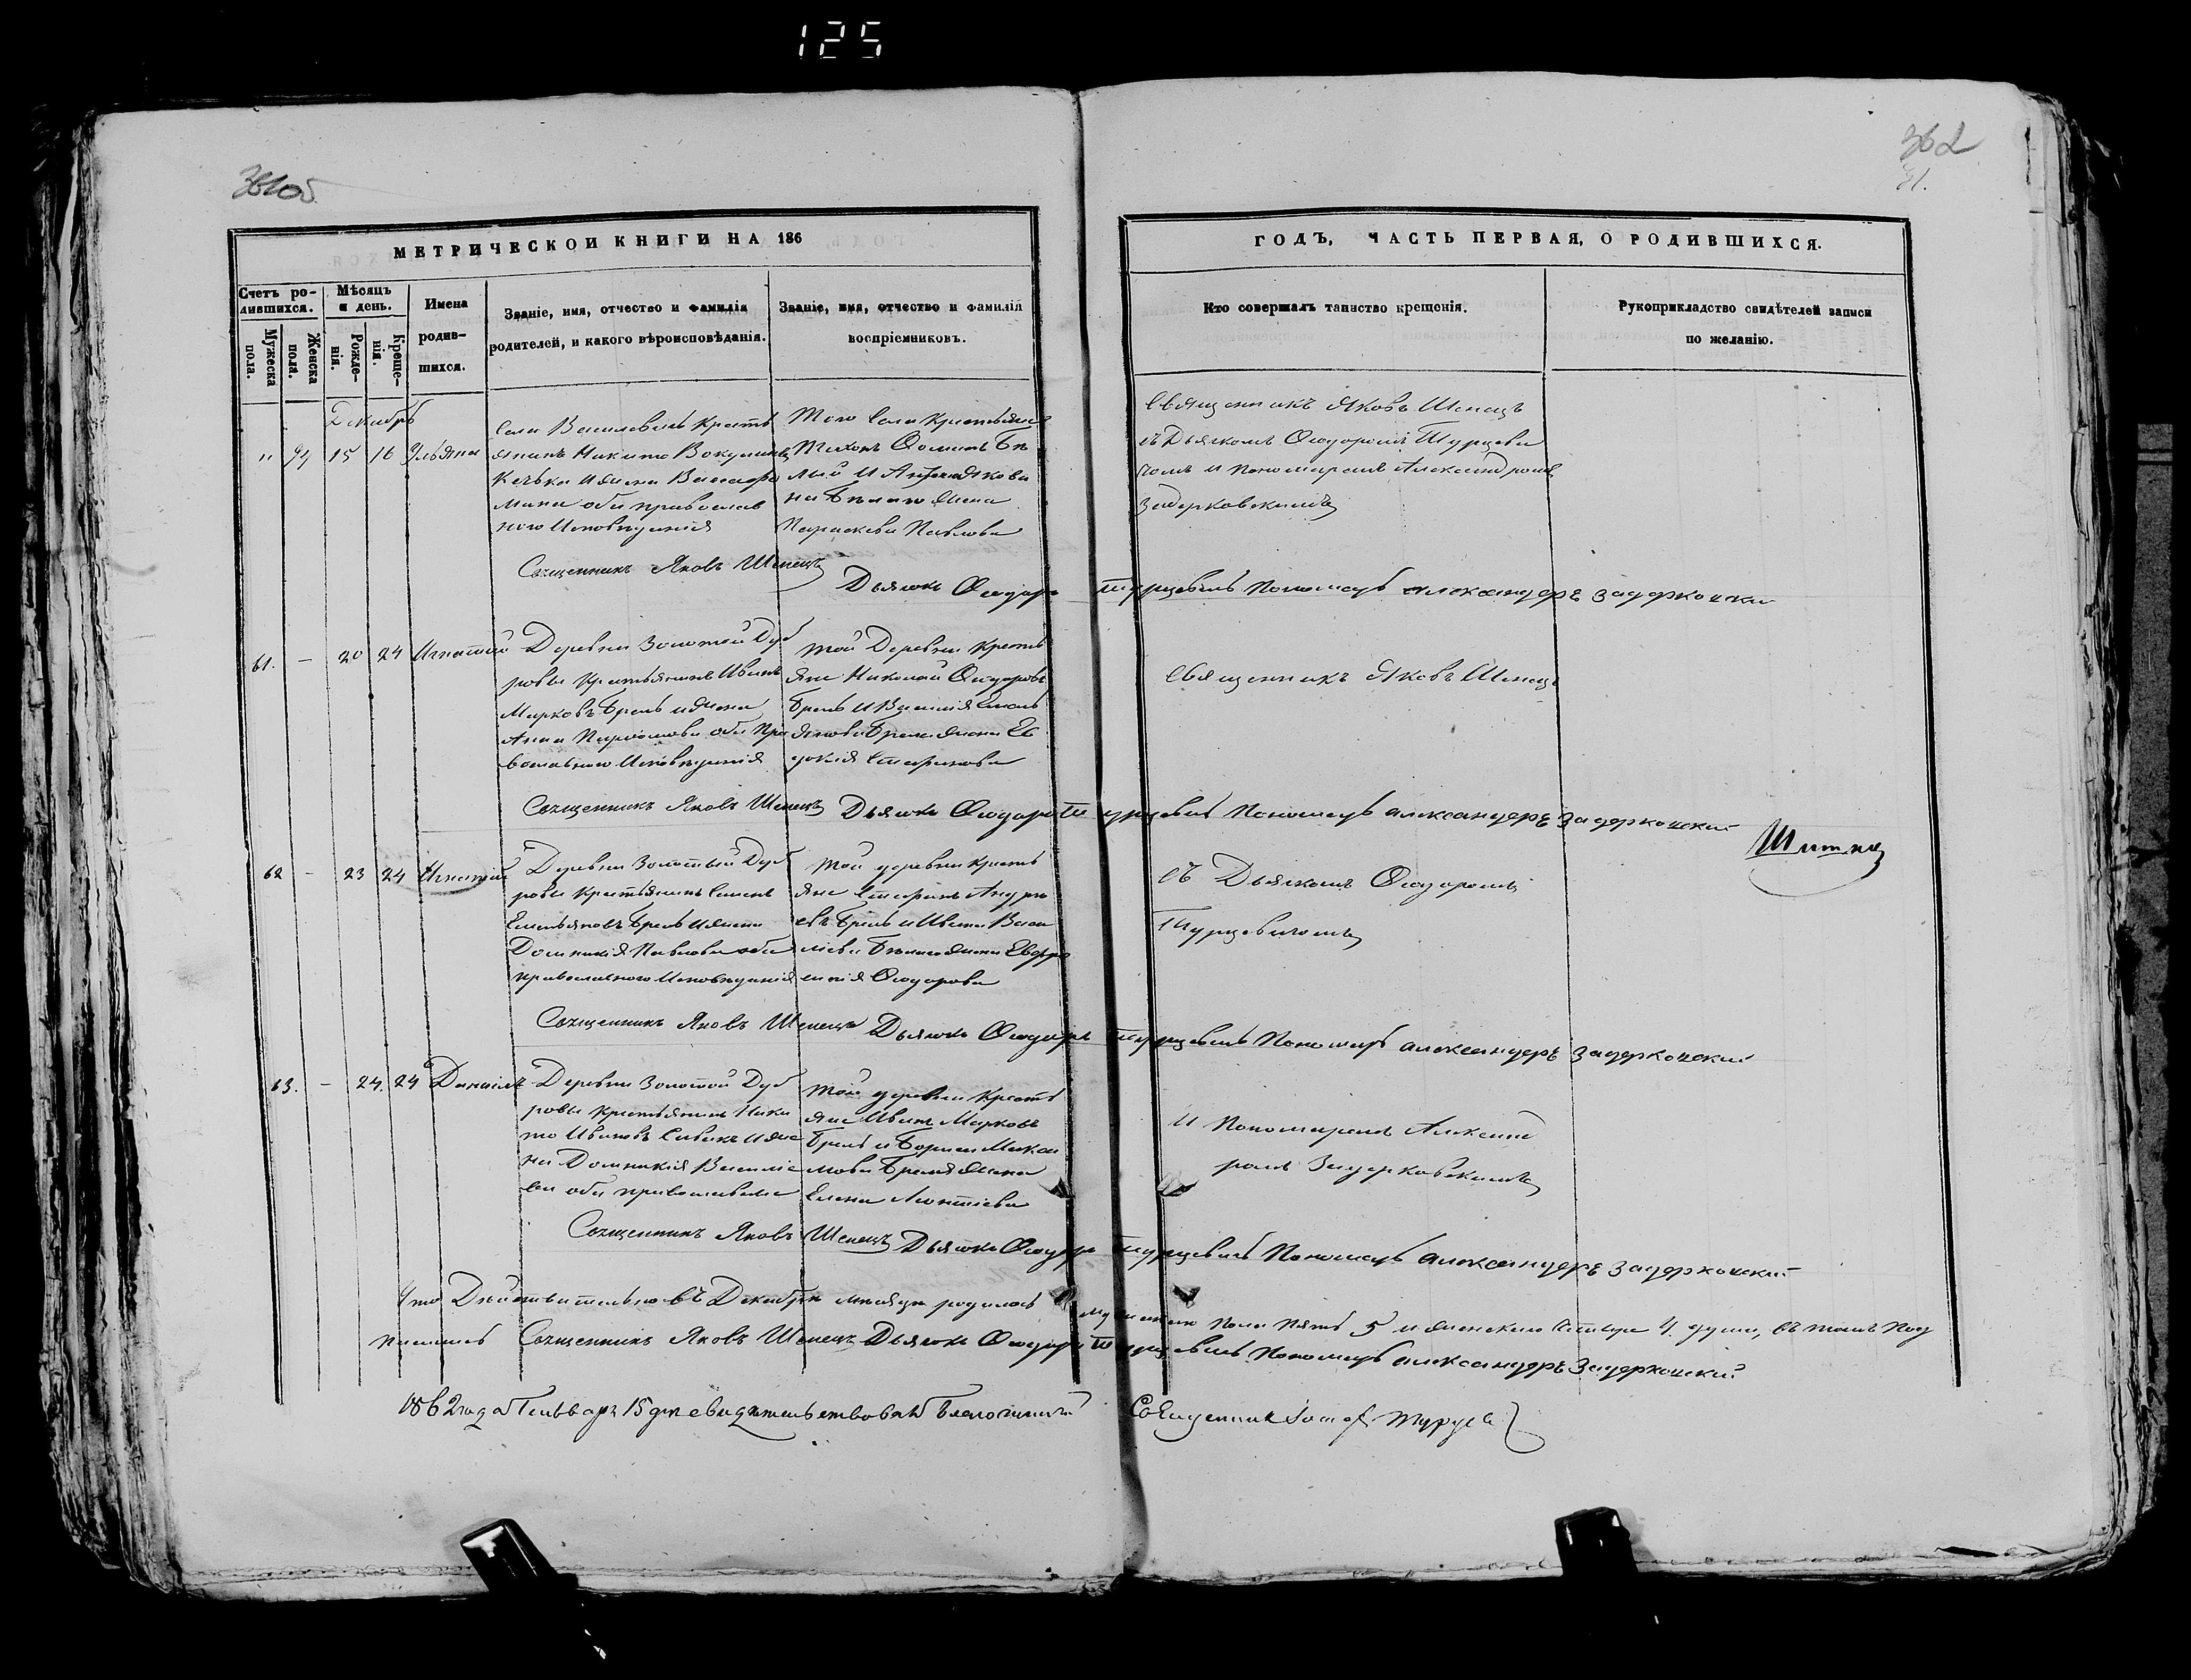 125
361об
362
91.
МЕТРИЧЕСКОЙ КНИГИ НА 186
ГОДЪ, ЧАСТЬ ПЕРВАЯ, О РОДИВШИХСЯ.
Счетъ ро-
дившихся.
Мужеска
пола.
Женска
пола.
Мѣсяцъ
и день.
Рожде-
нія.
Креще-
нія.
Имена
родив-
шихся.
Званіе, имя, отчество и фамилія
родителей, и какого вѣроисповѣданія.
Званіе, имя, отчество и фамилія
воспріемниковъ.
Кто совершалъ таинство крещенія.
Рукоприкладство свидѣтелей записи
по желанію.
Декабрь
" 94 15 16 Ульяна
Села Василевичь Кресть
янинъ Никита
и жена
оба православ
наго Исповѣданія
Того Села Крестьяне
Тихонъ Ѳоминъ Бѣ
лый и Яковы
на Бѣлаго жена
Параскева Павлова
Священникъ Яковъ Шенецъ
съ Дьякомъ Ѳеодоромъ Турцеви
чомъ и Пономаремъ Александромъ
Задерковскимъ
Священникъ Яковъ Шенецъ Дьячокъ Ѳеодоръ Турцевичь Пономарь Александръ Задерковский
61. - 20 24 Игнатий
Деревни Золотой Дуб
ровы Крестьянинъ Иванъ
Марковъ Брель и жена
Анна оба Пра
вославнаго Исповѣданія
Той Деревни Кресть
яне Николай Ѳеодоровъ
Брель и Василія Емель
янова Бреля жена Ев
докія
Священникъ Яковъ Шенецъ
Священникъ Яковъ Шенецъ Дьячокъ Ѳеодоръ Турцевичь Пономарь Александръ Задерковский
62 - 23 24 Игнатий
Деревни Золотый Дуб
ровы Крестьянинъ Семенъ
Емельяновъ Брель и жена
Домникія Павлова оба
православнаго Исповѣданія
Той деревни Кресть
яне Андре
евъ Брель и Ивана Васи
ліева Бѣлаго жена Евфро
синія Ѳеодорова
съ Дьякомъ Ѳеодоромъ
Турцевичомъ
Священникъ Яковъ Шенецъ Дьячокъ Ѳеодоръ Турцевичь Пономарь Александръ Задерковский
63. - 24. 24 Даніилъ
Деревни Золотой Дуб
ровы Крестьянинъ Ники
та Ивановъ Сивакъ и же
на Домникія Василіе
ва оба православнаго
Той деревни Кресть
яне Иванъ Марковъ
Брель и Бориса
Бреля жена
Елена Леонтіева
и Пономаремъ Александ
ромъ Задерковскимъ
Священникъ Яковъ Шенецъ Дьячокъ Ѳеодоръ Турцевичь Пономарь Александръ Задерковский
Что Дѣйствительно въ Декабрѣ мѣсяцѣ родилось мужеска пола пять 5 и женскаго четыре 4. души, въ томъ Под
писались Священникъ Яковъ Шенецъ Дьячокъ Ѳеодоръ Турцевичь Пономарь Александръ Задерковский
1862 года Генваря 15 дня свидѣтельствовалъ Благочинный Священник Іосиф